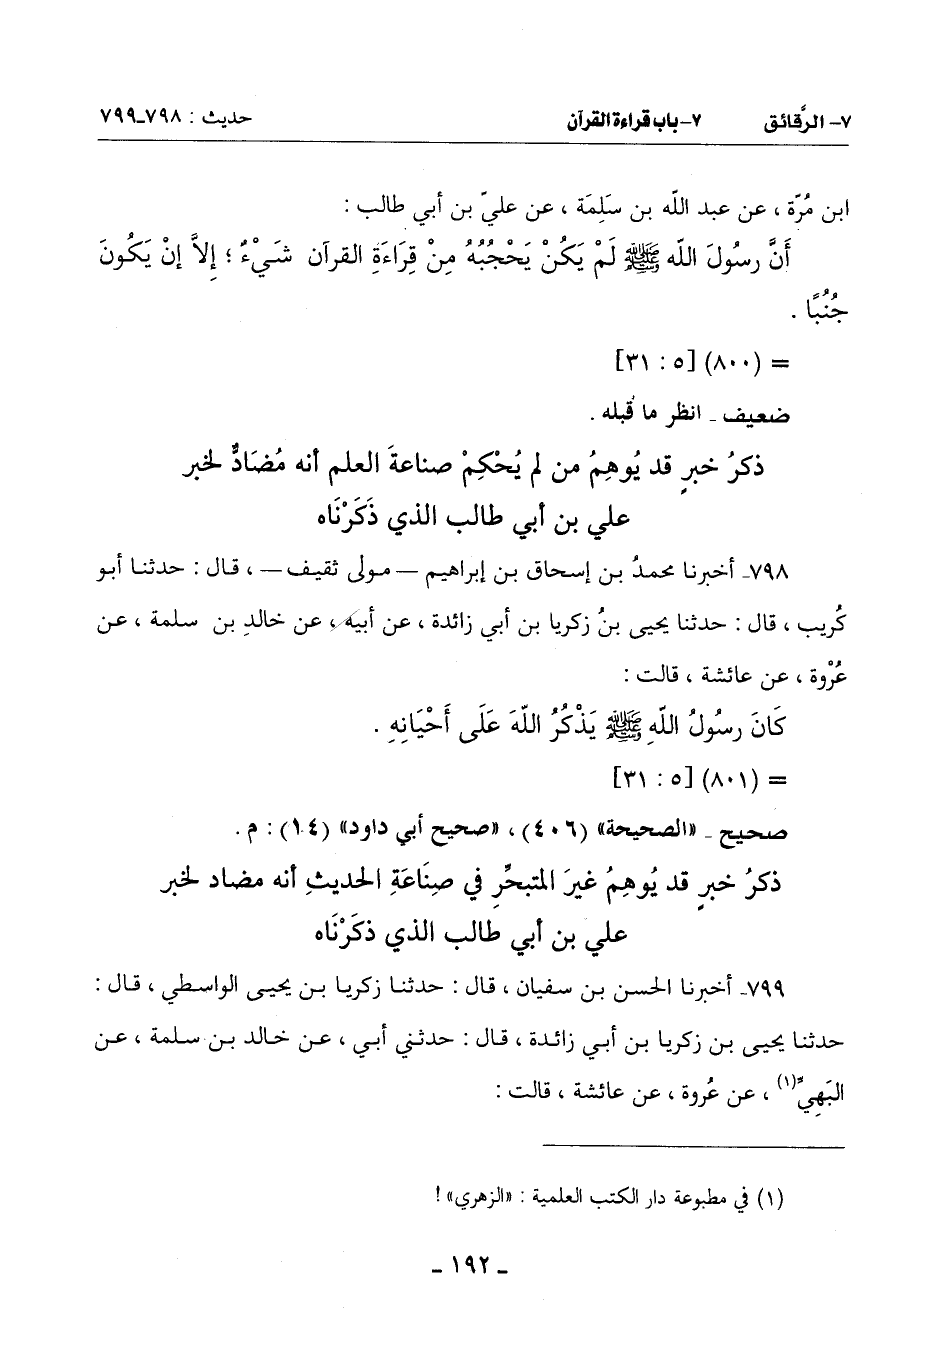 ٧- الرَّقائق ٧-باب قراءة القرآن حديث : ٧٩٨ـ٧٩٩
ابن مُرّة ، عن عبد اللّه بن سَلِمَة ، عن عليّ بن أبي طالب :
أَنَّ رسُولَ اللّه ﷺ لَمْ يَكُنْ يَحْجُبُهُ مِنْ قِرَاءَةِ القرآن شَيْءٌ ؛ إِلاَّ إنْ يَكُونَ
جُنُبًا .
= (٨٠٠) [٥ : ٣١]
ضعيف ـ انظر ما قبله .
ذكرُ خبرٍ قد يُوهِمُ من لم يُحْكِمْ صناعةَ العلم أنه مُضَادٌّ لخبر
علي بن أبي طالب الذي ذَكَرْنَاه
٧٩٨ـ أخبرنا محمدُ بن إسحاق بن إبراهيم — مولى ثقيف — ، قال : حدثنا أبو
كُريب ، قال : حدثنا يحيى بنُ زكريا بن أبي زائدة ، عن أبيه ، عن خالدِ بن سلمة ، عن
عُرْوة ، عن عائشة ، قالت :
كَانَ رسُولُ اللّهِ ﷺ يَذْكُرُ اللّهَ عَلَى أَحْيَانِهِ .
= (٨٠١) [٥ : ٣١]
صحيح ـ «الصحيحة» (٤٠٦) ، «صحيح أبي داود» (١٤) : م .
ذكرُ خبرٍ قد يُوهِمُ غيرَ المتبحِّرِ في صِنَاعَةِ الحديثِ أنه مضاد لخبر
علي بن أبي طالب الذي ذكَرْنَاه
٧٩٩ـ أخبرنا الحسن بن سفيان ، قال : حدثنا زكريا بن يحيى الواسطي ، قال :
حدثنا يحيى بن زكريا بن أبي زائدة ، قال : حدثني أبي ، عن خالد بن سلمة ، عن
البَهِيِّ(١) ، عن عُروة ، عن عائشة ، قالت :
(١) في مطبوعة دار الكتب العلمية : «الزهري» !
ـ ١٩٢ ـ